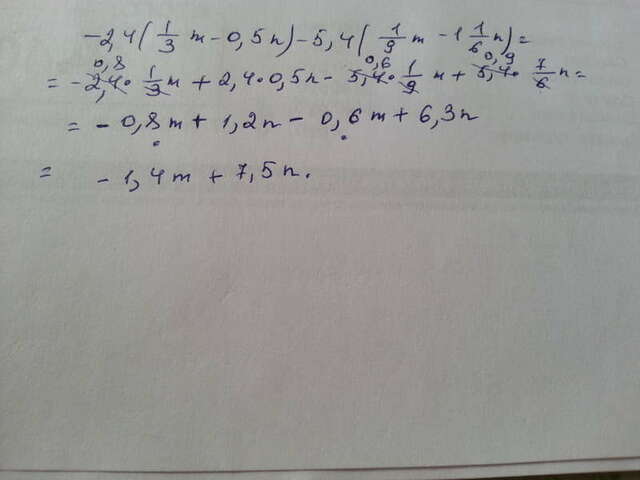 -2,4(1/3 m - 0,5n) - 5,4(1/9 m - 1 1/6 n) =
0,8 0,6 0,9
= -2,4 · 1/3 m + 2,4 · 0,5n - 5,4 · 1/9 m + 5,4 · 7/6 n =
= - 0,8m + 1,2n - 0,6m + 6,3n
= -1,4m + 7,5n.